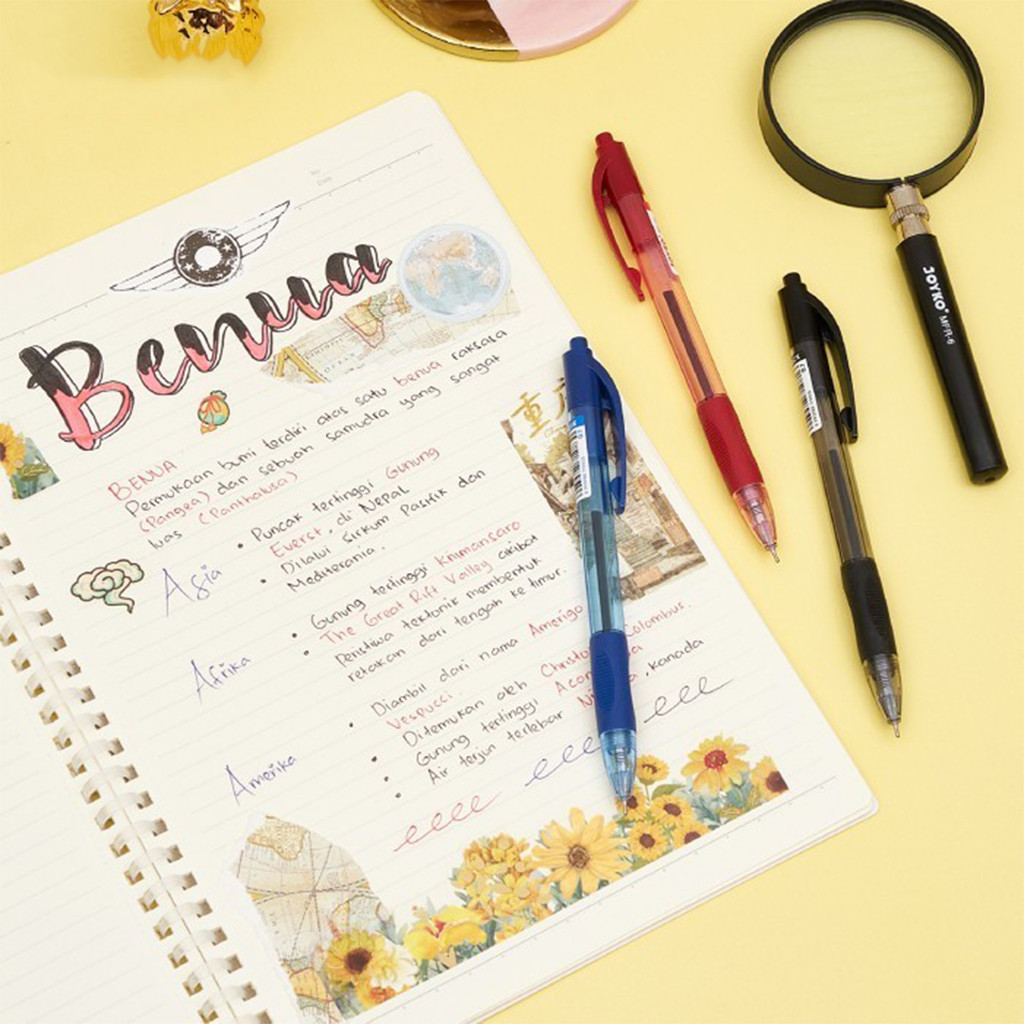 No
Date
Benua
BENUA
Permukaan bumi terdiri atas satu benua raksasa
(Pangea) dan sebuah samudra yang sangat
luas (Panthalasa)
Asia
• Puncak tertinggi Gunung
Everst, di Nepal
• Dilalui Sirkum Pasifik dan
Mediterania.
Afrika
• Gunung tertinggi Kilimansaro
• The Great Rift Valley akibat
Peristiwa tektonik membentuk
retakan dari tengah ke timur.
Amerika
• Diambil dari nama Amerigo
Vespucci.
• Ditemukan oleh Colombus.
• Gunung tertinggi
• Air terjun terlebar , Kanada
重
JOYKO
MFR-6